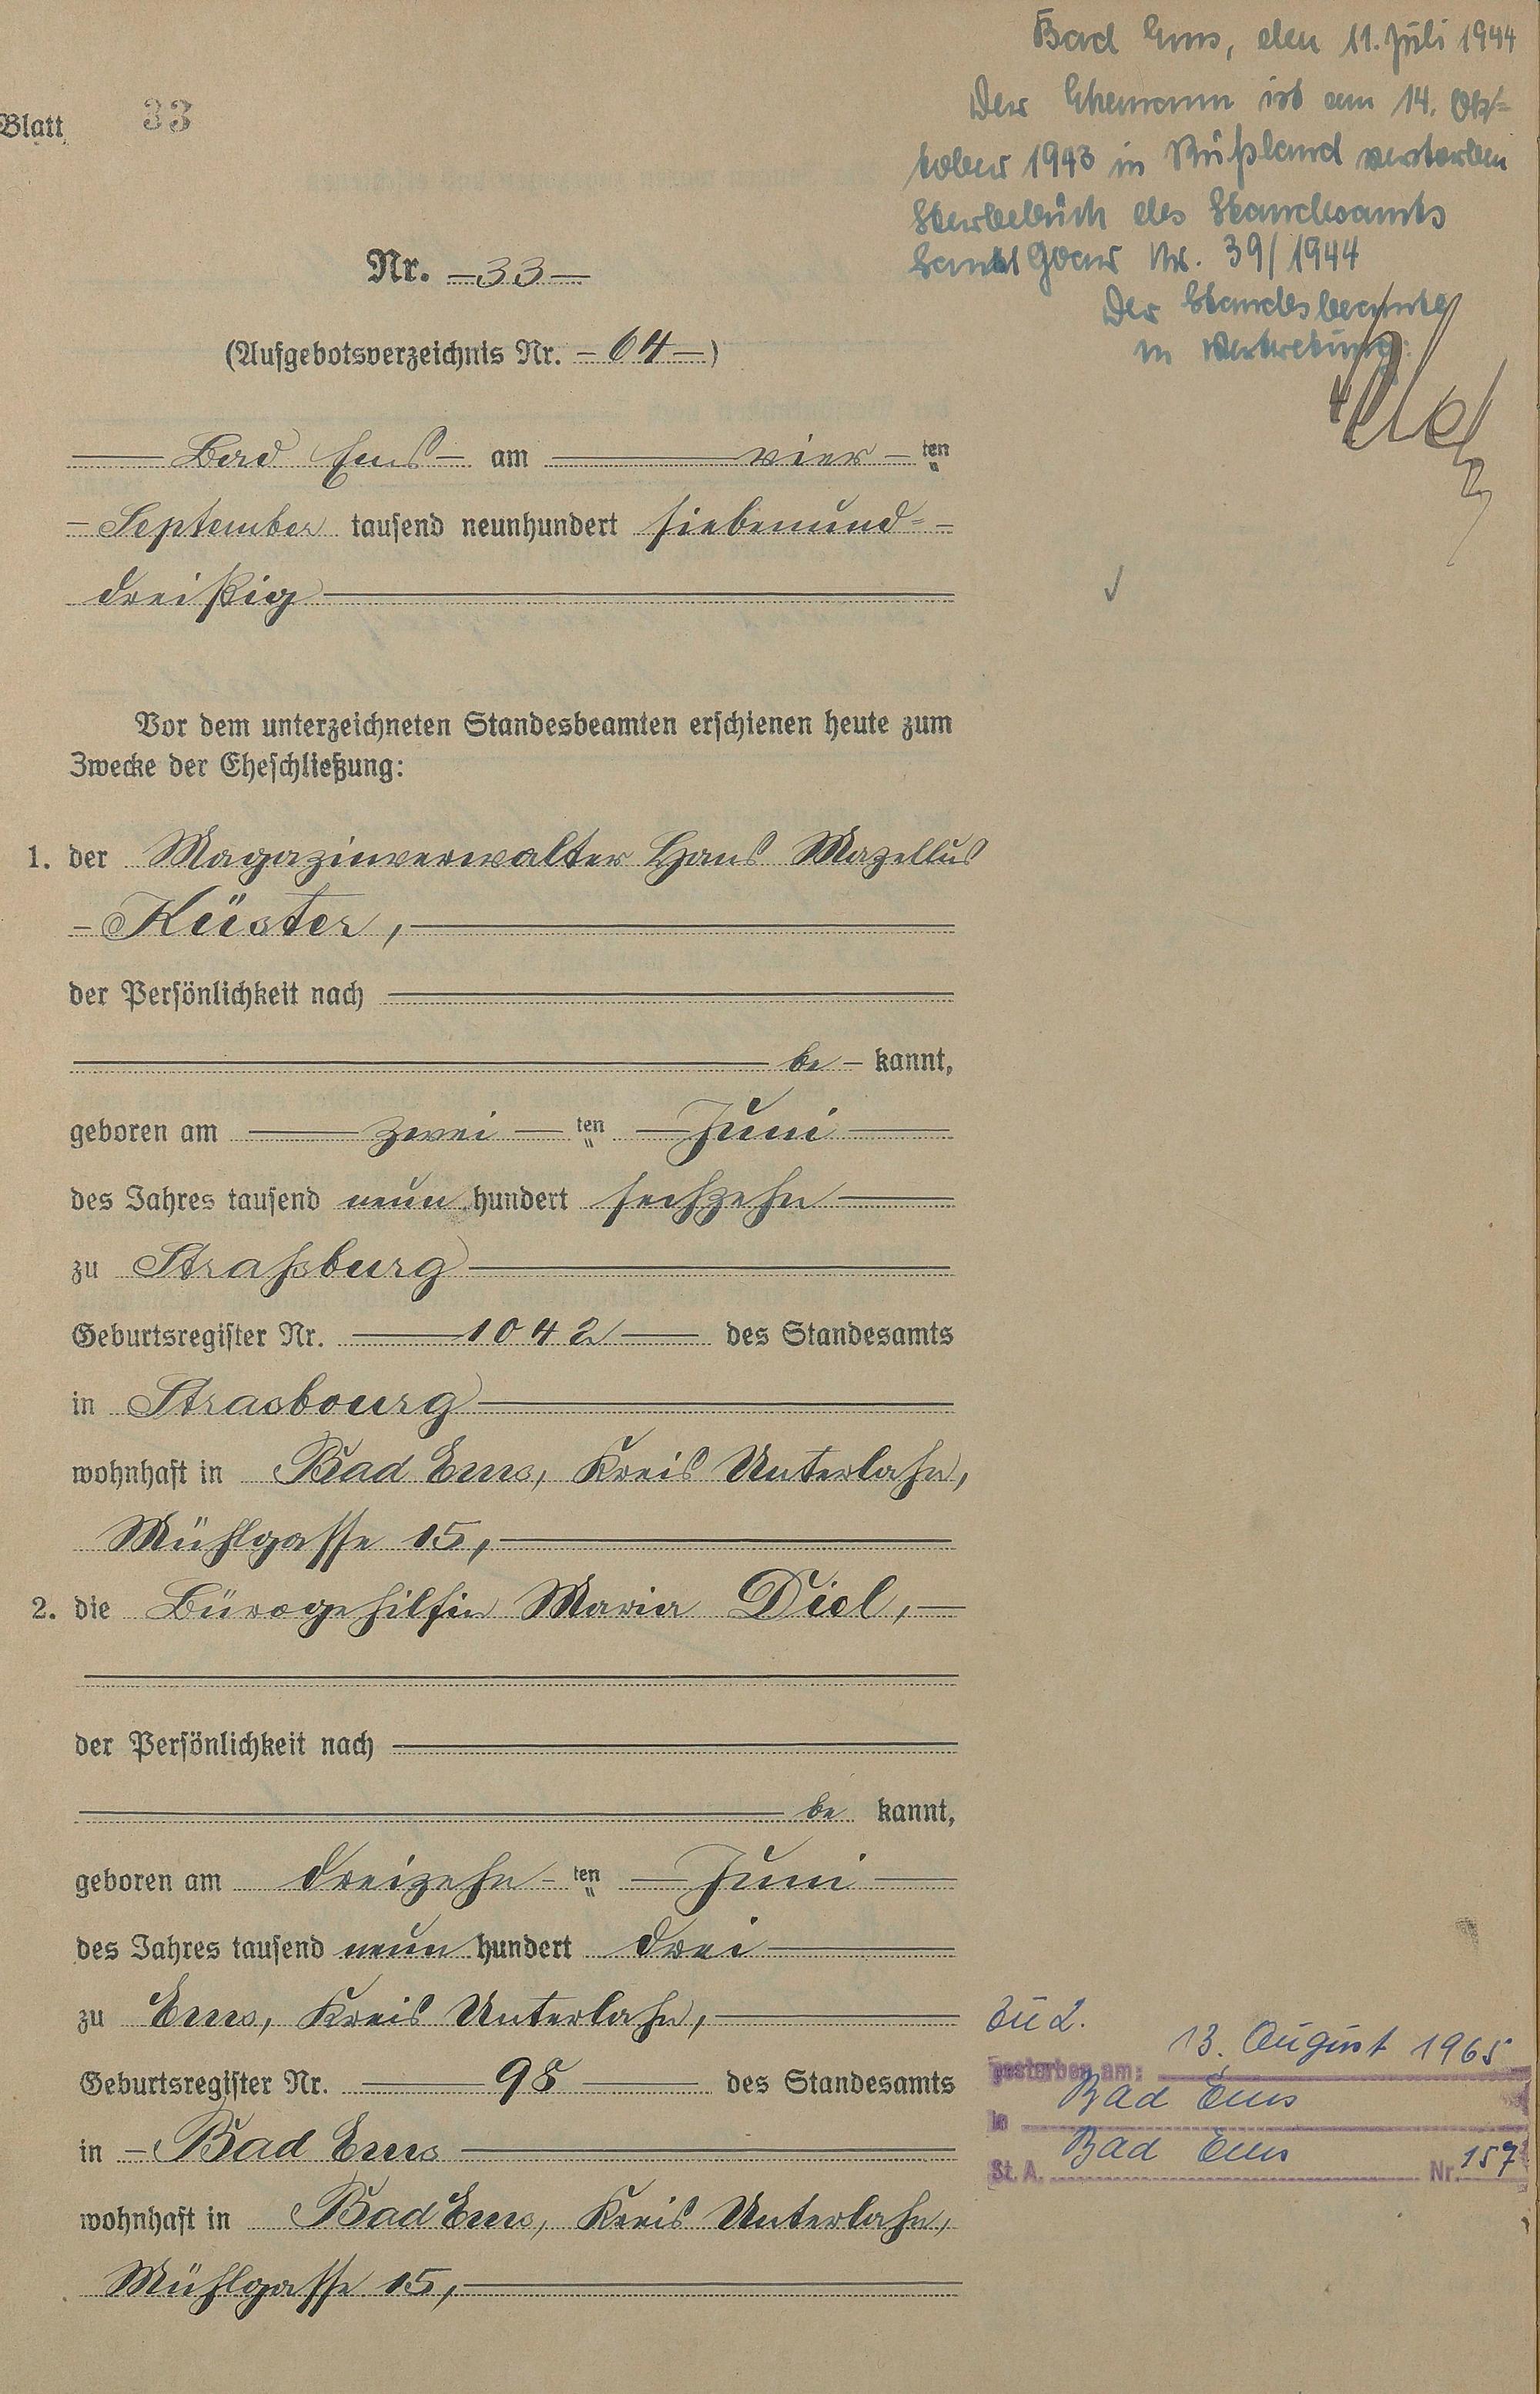 Bad Ems, den 11. Juli 1944
Der Ehemann ist am 14. Ok=
tober 1943 in Rußland verstorben
Sterbebuch des Standesamts
Sankt Goar Nr. 39/1944
Der Standesbeamte
in Vertretung:
Blatt 33
Nr. -33-
(Aufgebotsverzeichnis Nr. -64-)
Bad Ems - am vier - ten
- September tausend neunhundert siebenund=
dreißig
Vor dem unterzeichneten Standesbeamten erschienen heute zum
Zwecke der Eheschließung:
1. der Magazinverwalter Hans Mazellus
- Küster,
der Persönlichkeit nach
be - kannt,
geboren am zwei - ten - Juni
des Jahres tausend neun hundert sechzehn
zu Straßburg
Geburtsregister Nr. 1042 des Standesamts
in Strasbourg
wohnhaft in Bad Ems, Kreis Unterlahn,
Mühlgasse 15,
2. die Bürogehilfin Maria Diel,
der Persönlichkeit nach
be kannt,
geboren am dreizehn - ten - Juni
des Jahres tausend neun hundert drei
zu Ems, Kreis Unterlahn,
Geburtsregister Nr. 98 des Standesamts
in - Bad Ems
wohnhaft in Bad Ems, Kreis Unterlahn,
Mühlgasse 15,
zu 2.
gestorben am: 13. August 1965
in Bad Ems
St. A. Bad Ems Nr. 157